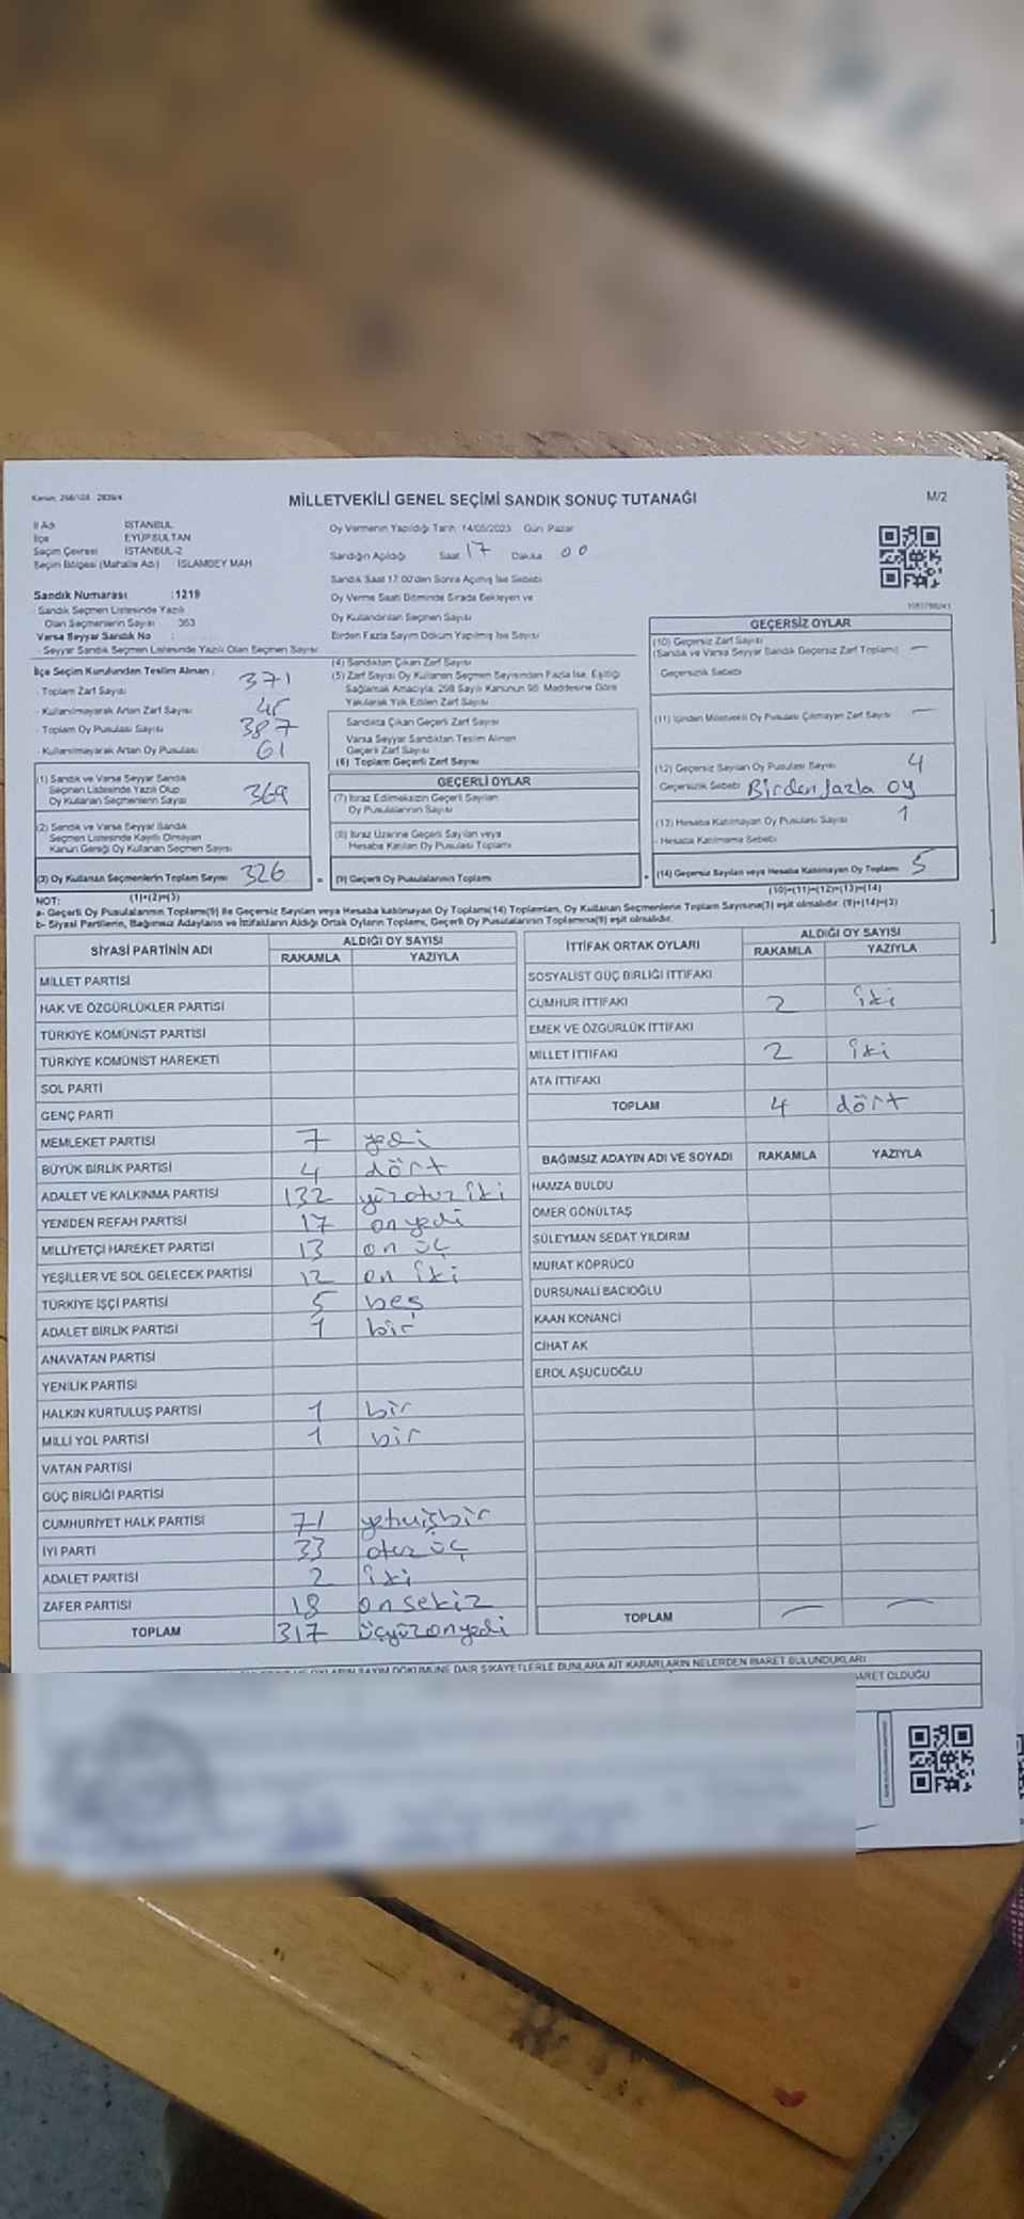 Kanun: 298/108 - 2839/4
MİLLETVEKİLİ GENEL SEÇİMİ SANDIK SONUÇ TUTANAĞI
M/2
İl Adı İSTANBUL
İlçe EYÜPSULTAN
Seçim Çevresi İSTANBUL-2
Seçim Bölgesi (Mahalle Adı) İSLAMBEY MAH
Oy Vermenin Yapıldığı Tarih: 14/05/2023 Gün: Pazar
Sandığın Açıldığı Saat 17 Dakika 00
Sandık Saat 17:00'den Sonra Açılmış İse Sebebi
Oy Verme Saati Bitiminde Sırada Bekleyen ve
Oy Kullandırılan Seçmen Sayısı
Birden Fazla Sayım Döküm Yapılmış İse Sayısı
Sandık Numarası :1219
- Sandık Seçmen Listesinde Yazılı
Olan Seçmenlerin Sayısı 363
Varsa Seyyar Sandık No :
- Seyyar Sandık Seçmen Listesinde Yazılı Olan Seçmen Sayısı
İlçe Seçim Kurulundan Teslim Alınan :
- Toplam Zarf Sayısı 371
- Kullanılmayarak Artan Zarf Sayısı 45
- Toplam Oy Pusulası Sayısı 387
- Kullanılmayarak Artan Oy Pusulası 61
(1) Sandık ve Varsa Seyyar Sandık
Seçmen Listesinde Yazılı Olup
Oy Kullanan Seçmenlerin Sayısı 369
(2) Sandık ve Varsa Seyyar Sandık
Seçmen Listesinde Kayıtlı Olmayan
Kanun Gereği Oy Kullanan Seçmen Sayısı
(3) Oy Kullanan Seçmenlerin Toplam Sayısı 326
(1)+(2)=(3)
(4) Sandıktan Çıkan Zarf Sayısı
(5) Zarf Sayısı Oy Kullanan Seçmen Sayısından Fazla İse, Eşitliği
Sağlamak Amacıyla, 298 Sayılı Kanunun 98. Maddesine Göre
Yakılarak Yok Edilen Zarf Sayısı
Sandıkta Çıkan Geçerli Zarf Sayısı
Varsa Seyyar Sandıktan Teslim Alınan
Geçerli Zarf Sayısı
(6) Toplam Geçerli Zarf Sayısı
GEÇERLİ OYLAR
(7) İtiraz Edilmeksizin Geçerli Sayılan
Oy Pusulalarının Sayısı
(8) İtiraz Üzerine Geçerli Sayılan veya
Hesaba Katılan Oy Pusulası Toplamı
(9) Geçerli Oy Pusulalarının Toplamı
GEÇERSİZ OYLAR
(10) Geçersiz Zarf Sayısı
(Sandık ve Varsa Seyyar Sandık Geçersiz Zarf Toplamı) —
Geçersizlik Sebebi
(11) İçinden Milletvekili Oy Pusulası Çıkmayan Zarf Sayısı —
(12) Geçersiz Sayılan Oy Pusulası Sayısı 4
Geçersizlik Sebebi Birden fazla oy
(13) Hesaba Katılmayan Oy Pusulası Sayısı 1
- Hesaba Katılmama Sebebi
(14) Geçersiz Sayılan veya Hesaba Katılmayan Oy Toplamı 5
(10)+(11)+(12)+(13)=(14)
NOT:
a- Geçerli Oy Pusulalarının Toplamı(9) ile Geçersiz Sayılan veya Hesaba katılmayan Oy Toplamı(14) Toplamları, Oy Kullanan Seçmenlerin Toplam Sayısına(3) eşit olmalıdır. (9)+(14)=(3)
b- Siyasi Partilerin, Bağımsız Adayların ve İttifakların Aldığı Ortak Oyların Toplamı, Geçerli Oy Pusulalarının Toplamına(9) eşit olmalıdır.
SİYASİ PARTİNİN ADI ALDIĞI OY SAYISI
RAKAMLA YAZIYLA
MİLLET PARTİSİ
HAK VE ÖZGÜRLÜKLER PARTİSİ
TÜRKİYE KOMÜNİST PARTİSİ
TÜRKİYE KOMÜNİST HAREKETİ
SOL PARTİ
GENÇ PARTİ
MEMLEKET PARTİSİ 7 yedi
BÜYÜK BİRLİK PARTİSİ 4 dört
ADALET VE KALKINMA PARTİSİ 132 yüzotuz iki
YENİDEN REFAH PARTİSİ 17 onyedi
MİLLİYETÇİ HAREKET PARTİSİ 13 on üç
YEŞİLLER VE SOL GELECEK PARTİSİ 12 on iki
TÜRKİYE İŞÇİ PARTİSİ 5 beş
ADALET BİRLİK PARTİSİ 1 bir
ANAVATAN PARTİSİ
YENİLİK PARTİSİ
HALKIN KURTULUŞ PARTİSİ 1 bir
MİLLİ YOL PARTİSİ 1 bir
VATAN PARTİSİ
GÜÇ BİRLİĞİ PARTİSİ
CUMHURİYET HALK PARTİSİ 71 yetmişbir
İYİ PARTİ 33 otuz üç
ADALET PARTİSİ 2 iki
ZAFER PARTİSİ 18 on sekiz
TOPLAM 317 üçyüzonyedi
İTTİFAK ORTAK OYLARI ALDIĞI OY SAYISI
RAKAMLA YAZIYLA
SOSYALİST GÜÇ BİRLİĞİ İTTİFAKI
CUMHUR İTTİFAKI 2 iki
EMEK VE ÖZGÜRLÜK İTTİFAKI
MİLLET İTTİFAKI 2 iki
ATA İTTİFAKI
TOPLAM 4 dört
BAĞIMSIZ ADAYIN ADI VE SOYADI RAKAMLA YAZIYLA
HAMZA BULDU
ÖMER GÖNÜLTAŞ
SÜLEYMAN SEDAT YILDIRIM
MURAT KÖPRÜCÜ
DURSUNALİ BACIOĞLU
KAAN KONANCİ
CİHAT AK
EROL AŞUCUOĞLU
TOPLAM — —
OYLARIN SAYIM DÖKÜMÜNE DAİR ŞİKAYETLERLE BUNLARA AİT KARARLARIN NELERDEN İBARET BULUNDUKLARI
İBARET OLDUĞU